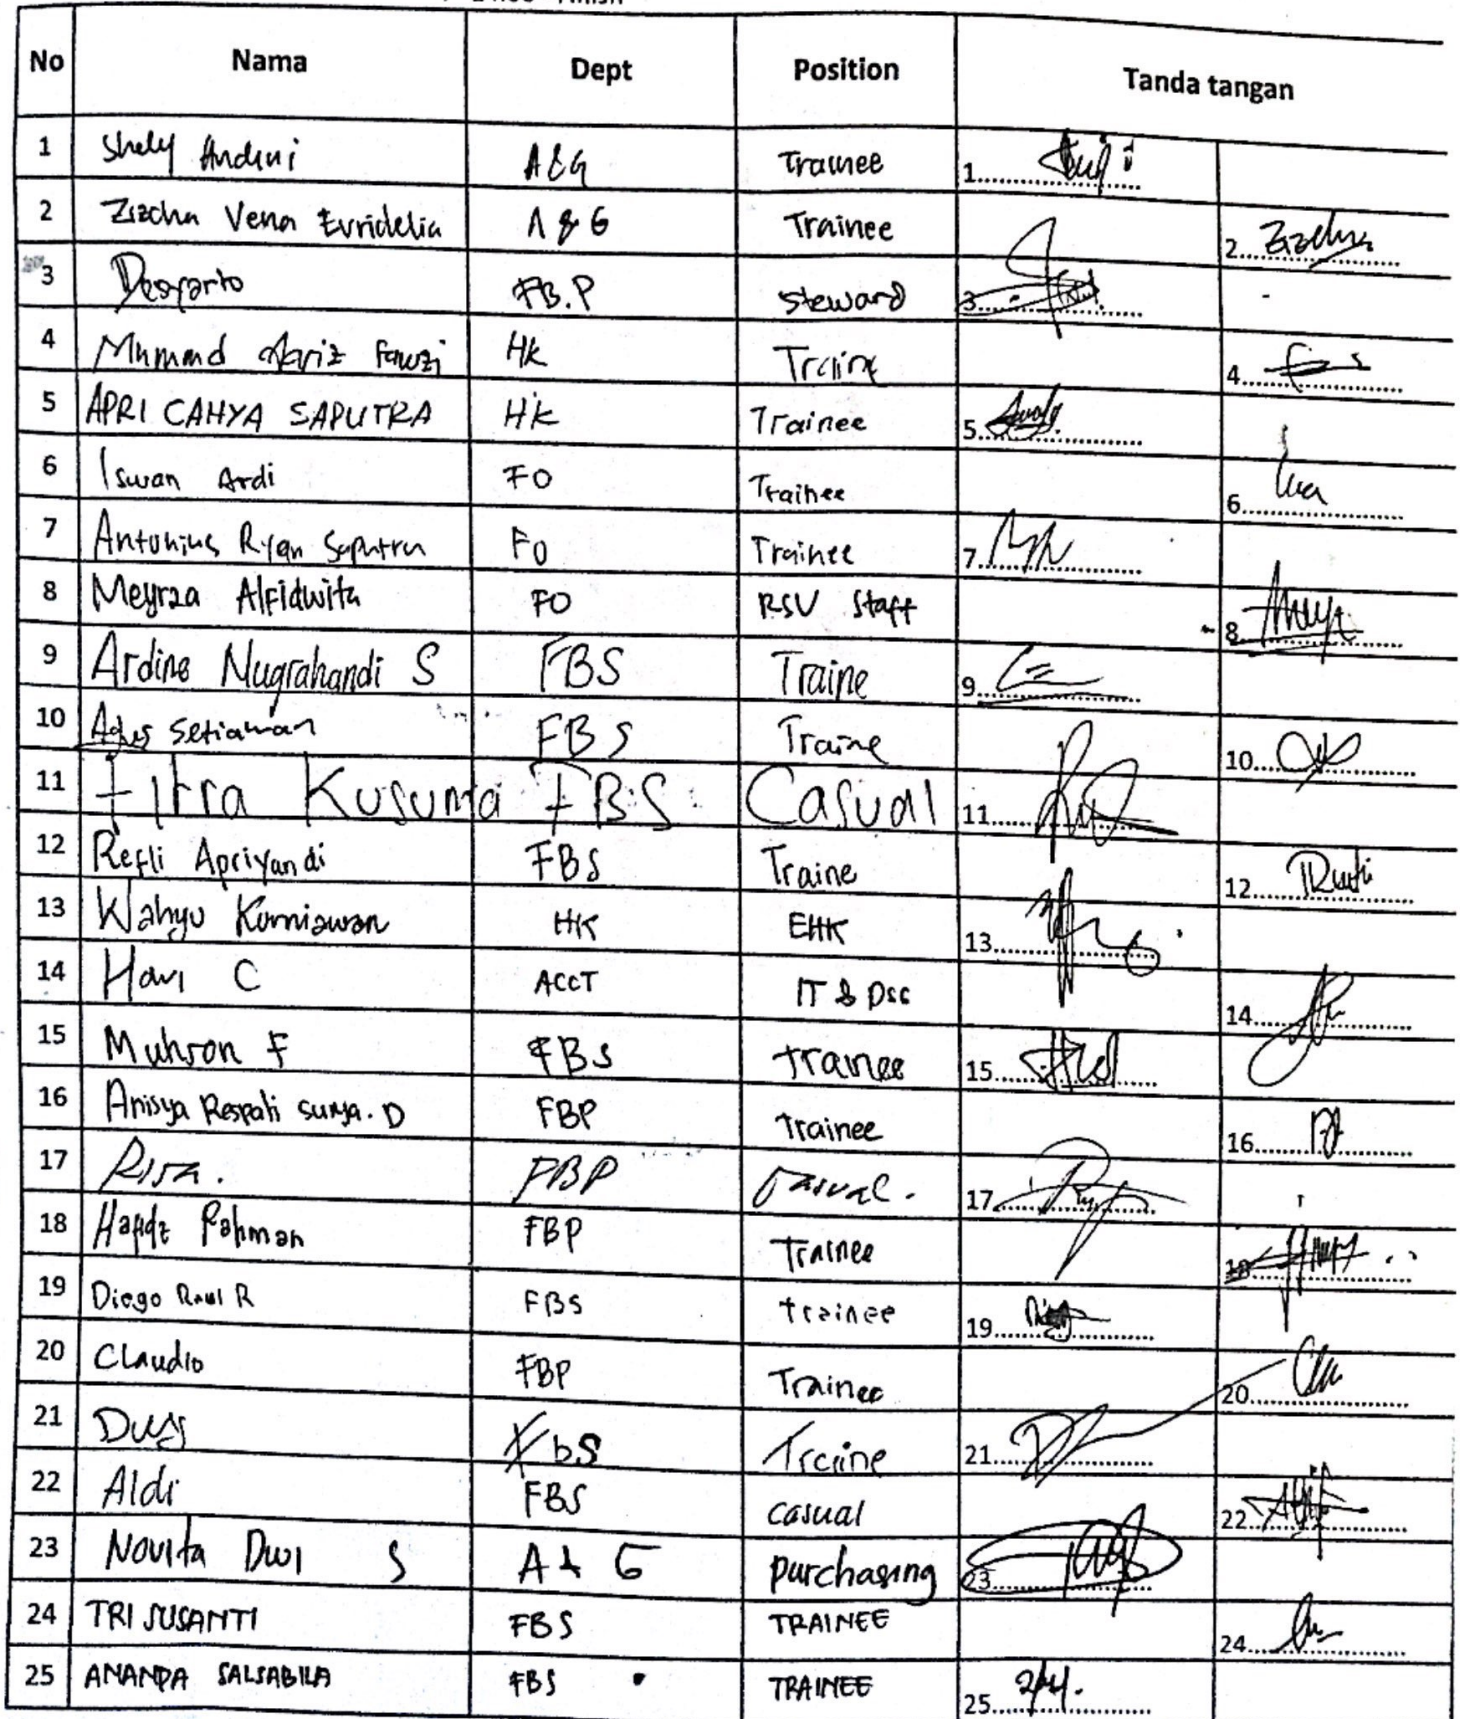 Finish
No Nama Dept Position Tanda tangan
1 Shely Andini A&G Trainee 1
2 Zizcha Vena Evridelia A & G Trainee 2
3 Desyarto FB.P Steward 3
4 Fauzi HK 4
5 APRI CAHYA SAPUTRA HK Trainee 5
6 Iswan Ardi FO Trainee 6
7 Antonius Ryan Saputra FO Trainee 7
8 Meyrza Alfidwita FO RSV Staff 8
9 Ardine Nugrahandi S FBS Traine 9
10 Agus Setiawan FBS Traine 10
11 Fitra Kusuma FBS Casual 11
12 Refli Apriyandi FBS Traine 12
13 Wahyu Kurniawan HK EHK 13
14 C ACCT IT & 14
15 Muhron F FBS trainee 15
16 Anisya Respati surya. D FBP Trainee 16
17 Risa. FBP Casual. 17
18 Hafidz Rahman FBP Trainee 18
19 Diego Raul R FBS trainee 19
20 Claudio FBP Trainee 20
21 FbS Traine 21
22 Aldi FBS casual 22
23 Novita Dwi S A & G purchasing 23
24 TRI SUSANTI FBS TRAINEE 24
25 ANANDA SALSABILA FBS TRAINEE 25